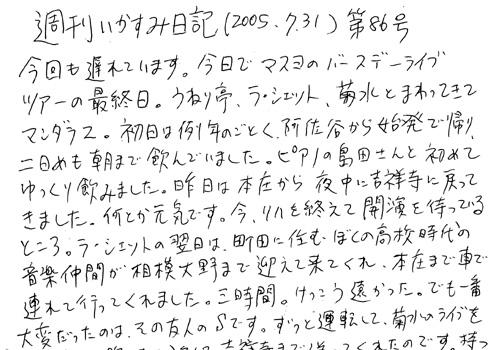 週刊いかすみ日記(2005.7.31)第86号
今回も遅れています。今日でマスヨのバースデーライブ
ツアーの最終日。うねり亭、ラ・シェット、菊水とまわってきて
マンダラ2。初日は例年のごとく、阿佐谷から始発で帰り、
二日めも朝まで飲んでいました。ピアノの島田さんと初めて
ゆっくり飲みました。昨日は本庄から夜中に吉祥寺に戻って
きました。何とか元気です。今、リハを終えて開演を待っている
ところ。ラ・シェットの翌日は、町田に住むぼくの高校時代の
音楽仲間が相模大野まで迎えに来てくれ、本庄まで車で
連れて行ってくれました。三時間。けっこう遠かった。でも一番
大変だったのは、その友人のSです。ずっと運転して、菊水のライブを